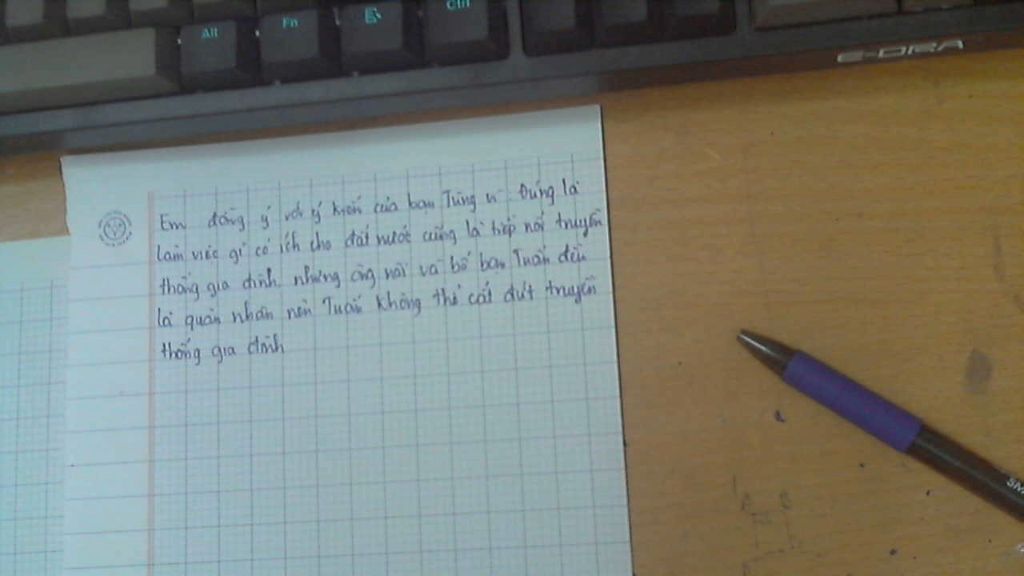 Alt
Fn
Ctrl
E-DRA
Em đồng ý với ý kiến của bạn Tùng vì. Đúng là
làm việc gì có ích cho đất nước cũng là tiếp nối truyền
thống gia đình. nhưng ông nội và bố bạn Tuấn đều
là quân nhân nên Tuấn không thể cắt đứt truyền
thống gia đình